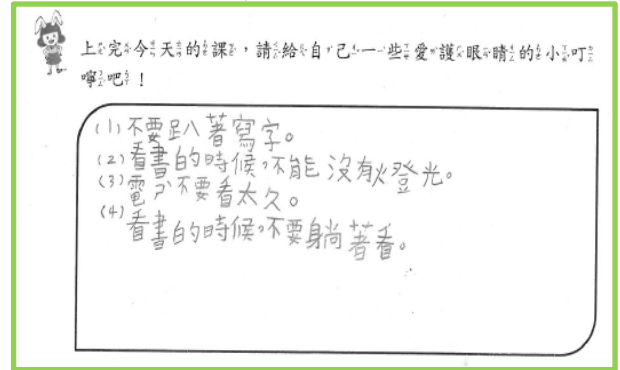 上完今天的課，請給自己一些愛護眼睛的小叮
嚀吧！
(1)不要趴著寫字。
(2)看書的時候，不能沒有燈光。
(3)電ㄕˋ不要看太久。
(4)看書的時候，不要躺著看。